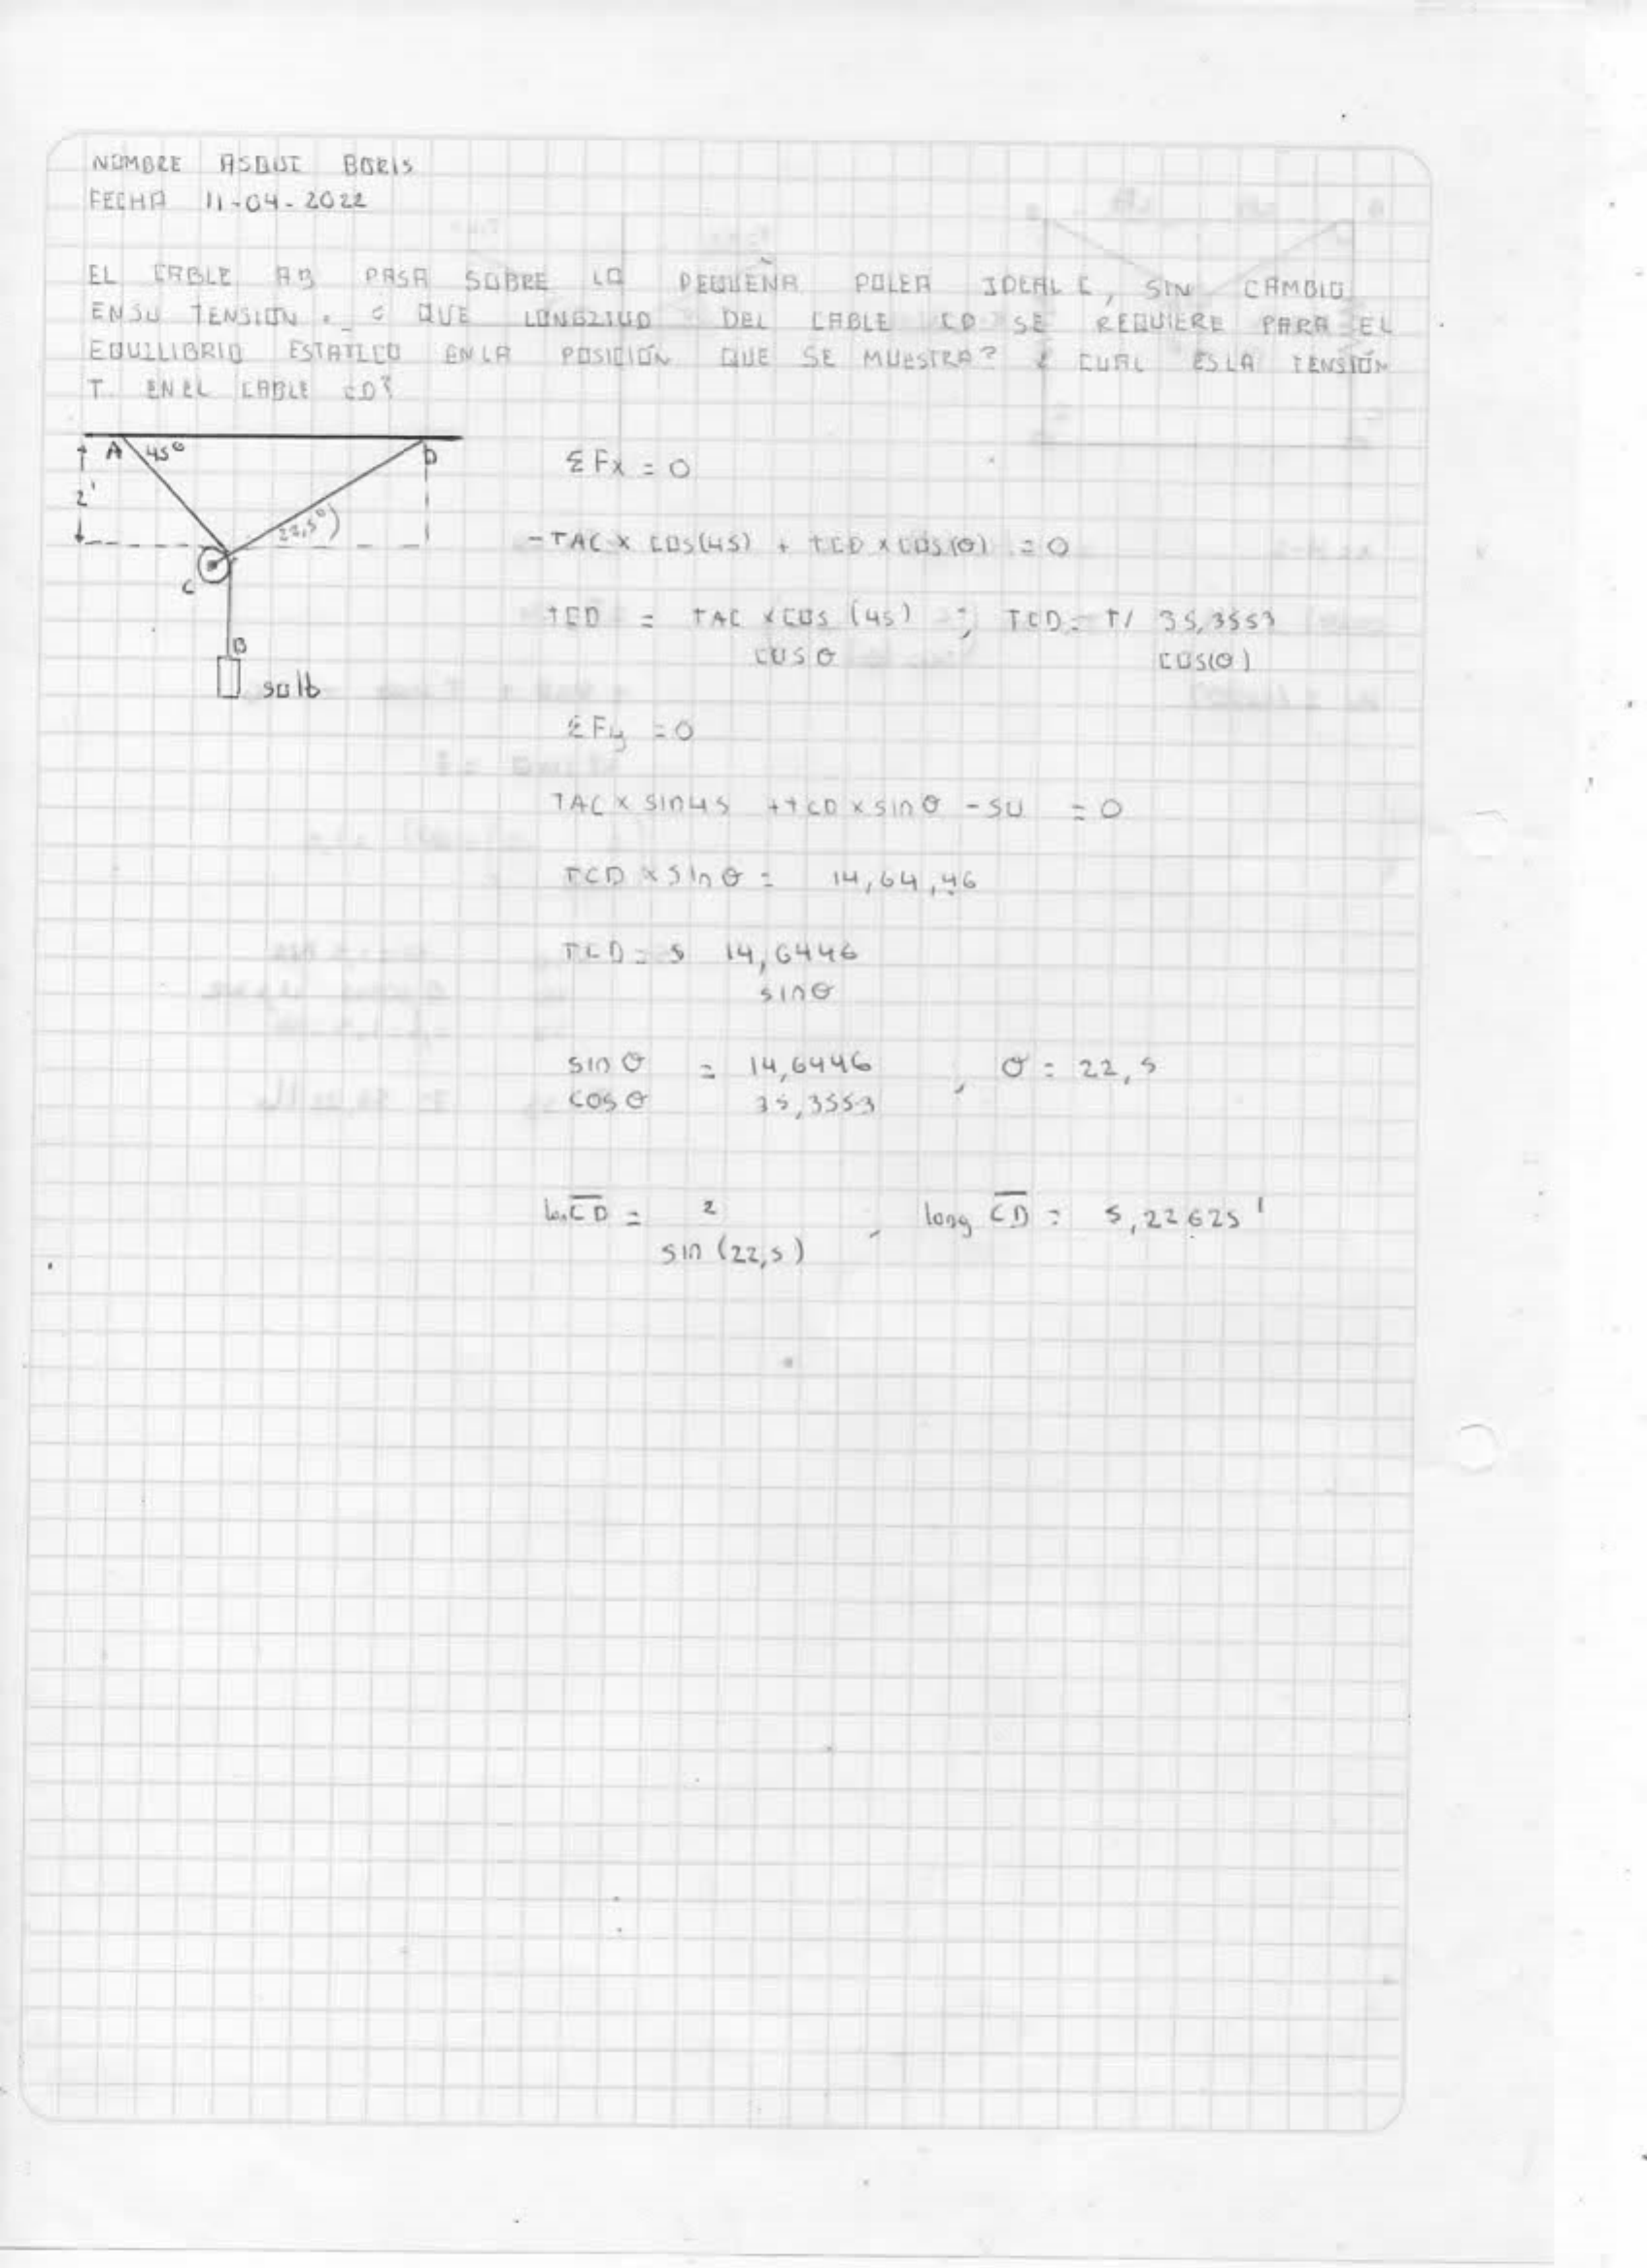 NOMBRE ASQUI BORIS
FECHA 11-04-2022
EL CABLE AB PASA SOBRE LA PEQUEÑA POLEA IDEAL C, SIN CAMBIO
EN SU TENSION. ¿ QUE LONGITUD DEL CABLE CD SE REQUIERE PARA EL
EQUILIBRIO ESTATICO EN LA POSICIÓN QUE SE MUESTRA? ¿ CUAL ES LA TENSIÓN
T. EN EL CABLE CD?
A 45° D
2'
22,5°
C
B
50 lb
ΣFx = 0
-TAC x COS(45) + TCD x COS(θ) = 0
TCD = TAC x COS (45) ; TCD = T/ 35,3553
COS θ COS(θ)
ΣFy = 0
TAC x sin45 + TCD x sin θ - 50 = 0
TCD x sin θ = 14,64,46
TCD = 14,6446
sin θ
sin θ = 14,6446 , θ = 22,5
cos θ 35,3553
CD = 2 , long CD = 5,22625'
sin (22,5)